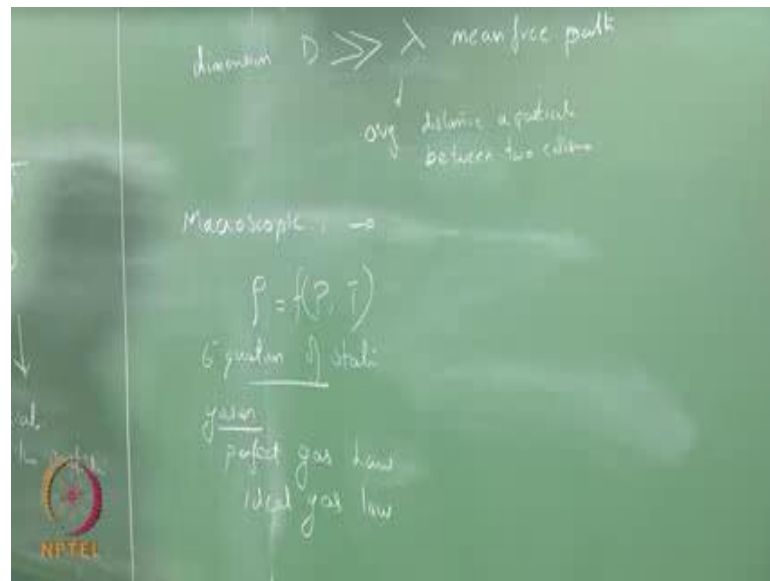 dimension D ≫ λ mean free path
↓
avg distance a particle
between two
Macroscopic : →
ρ = f(P, T)
Equation of state
gases
perfect gas Law
ideal gas law
NPTEL